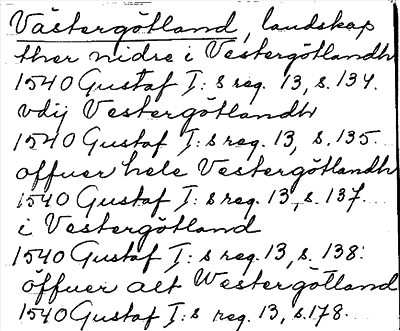 Västergötland, landskap
ther nidre i Vestergötlandh
1540 Gustaf I:s reg. 13, s. 134.
vdij Vestergötlandh
1540 Gustaf I:s reg. 13, s. 135.
offuer hele Vestergötlandh
1540 Gustaf I:s reg. 13, s. 137.
i Vestergötland
1540 Gustaf I:s reg. 13, s. 138.
öffuer alt Westergötland
1540 Gustaf I:s reg. 13, s. 178.